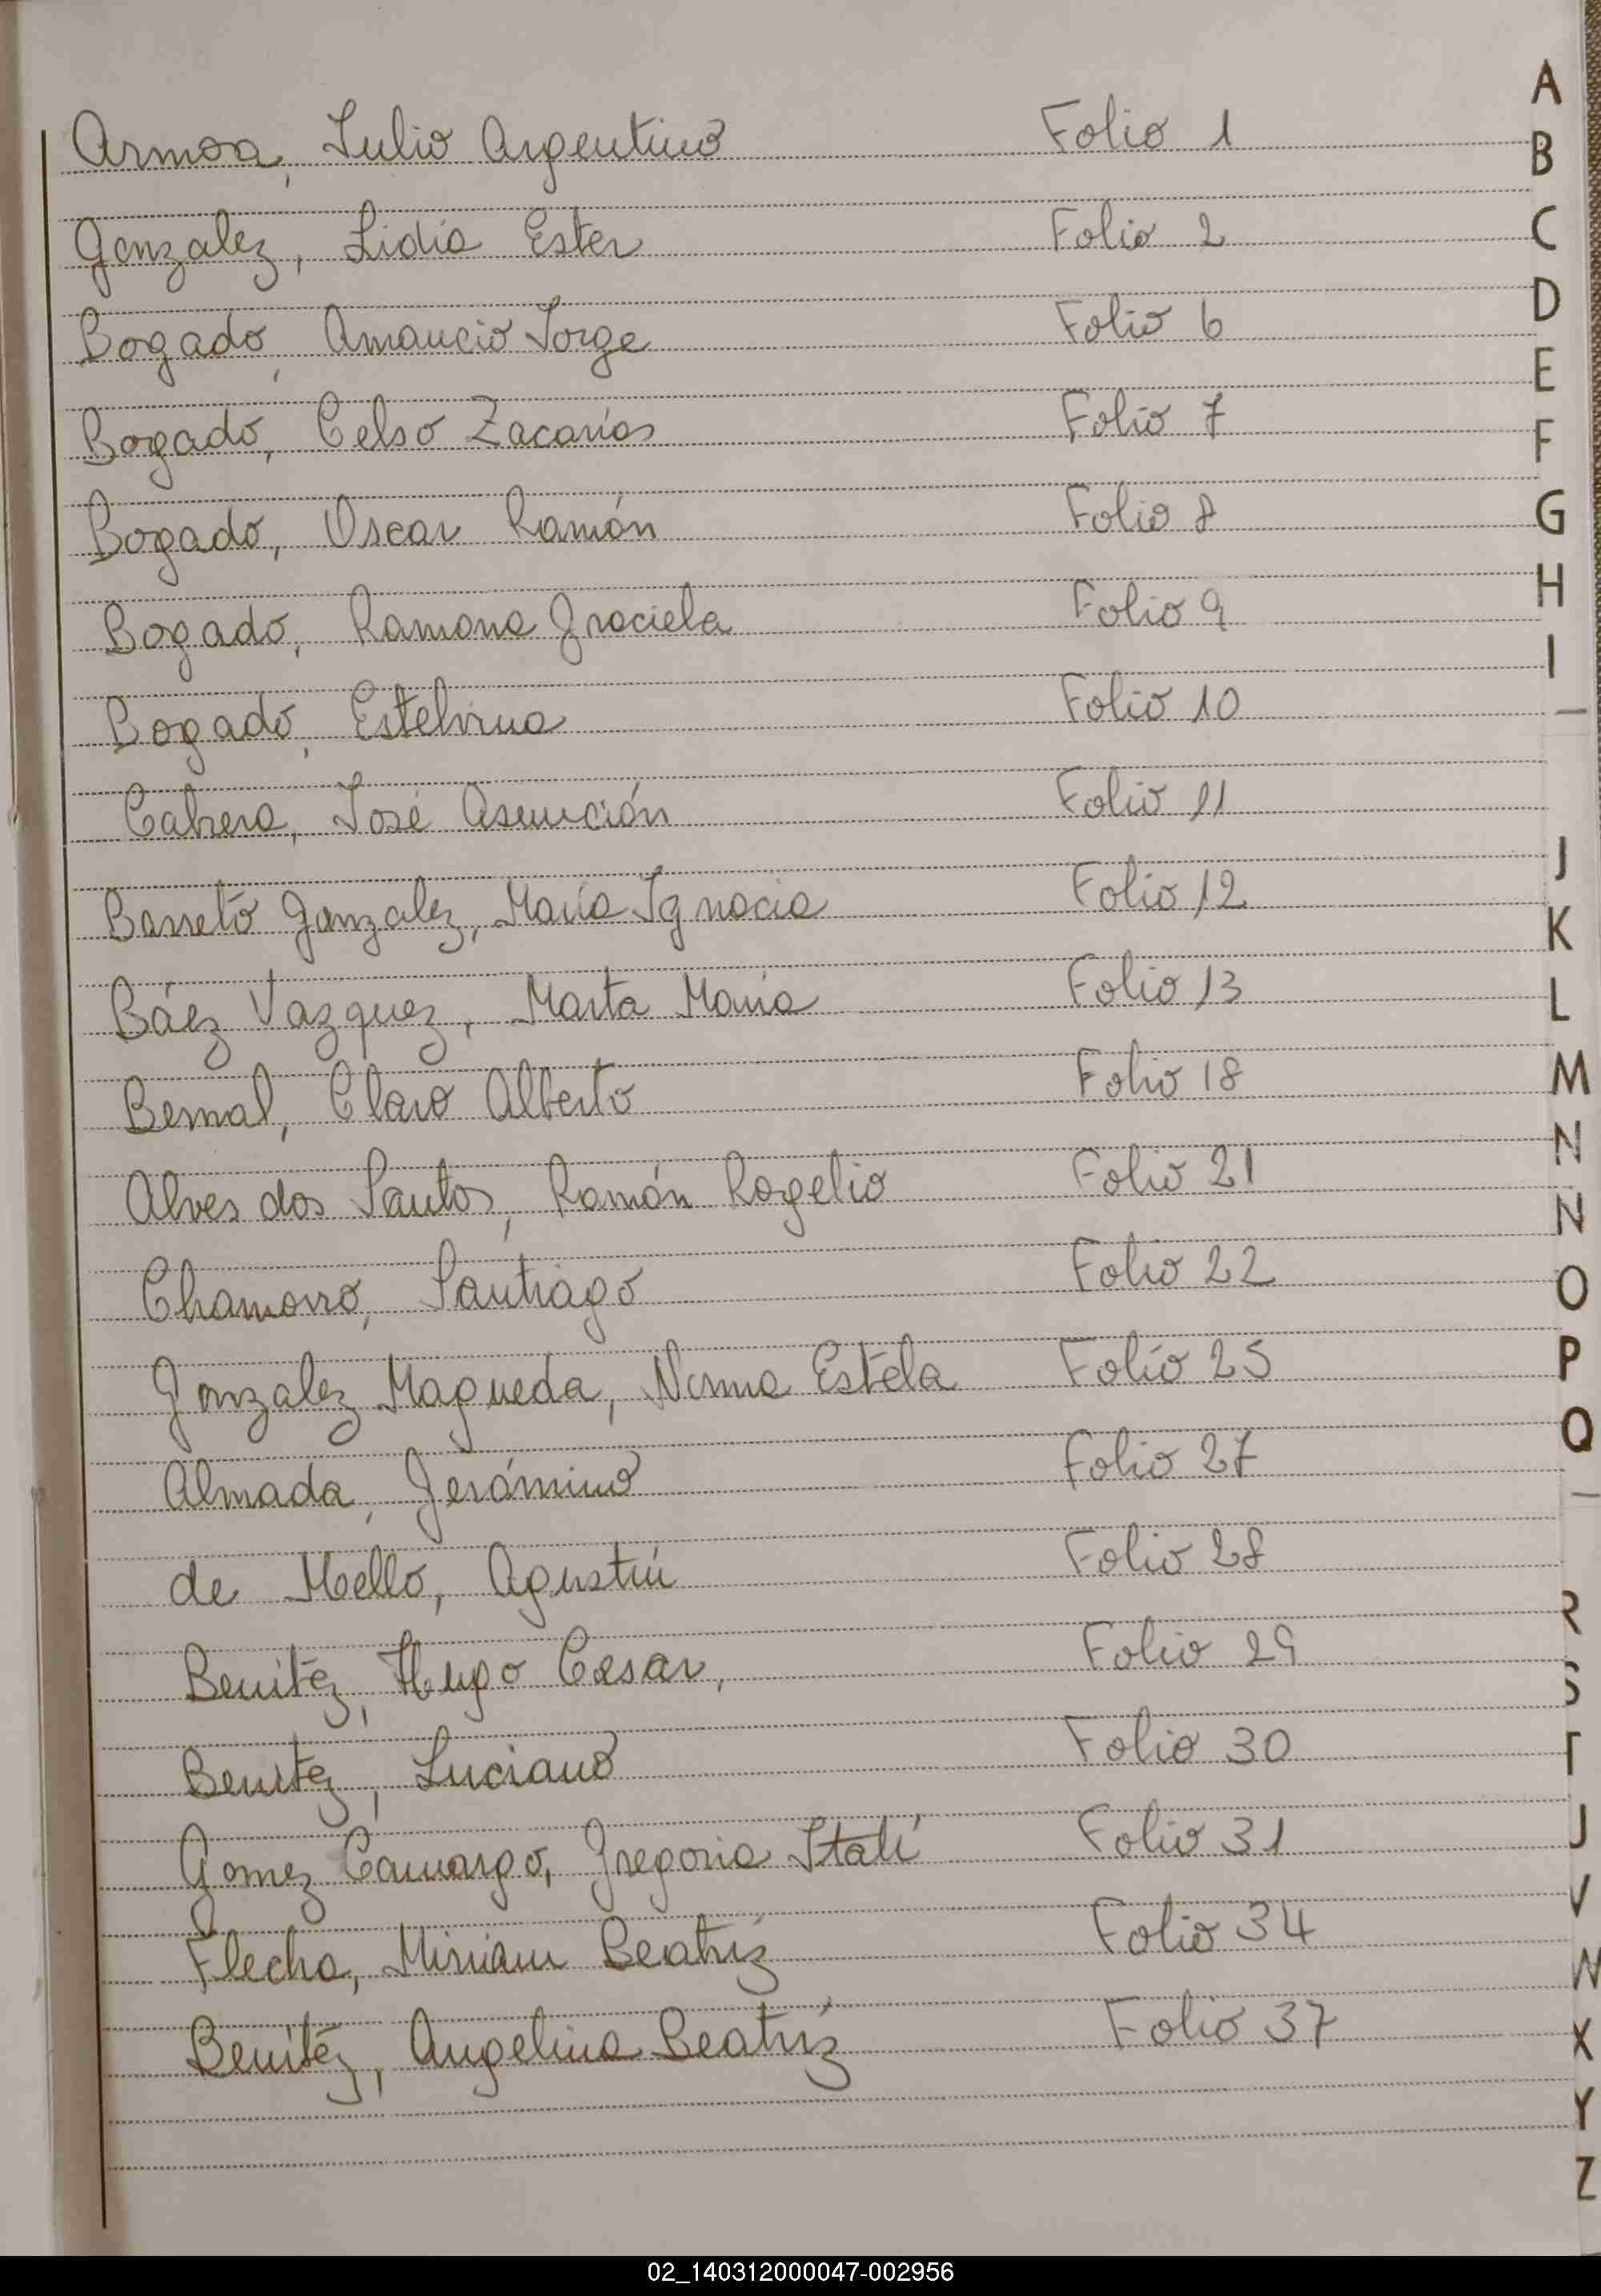 Armoa, Julio Argentino Folio 1
Gonzalez, Lidia Ester Folio 2
Bogado, Amancio Jorge Folio 6
Bogado, Celso Zacarías Folio 7
Bogado, Oscar Ramón Folio 8
Bogado, Ramona Graciela Folio 9
Bogado, Estelvina Folio 10
Cabrera, José Asunción Folio 11
Barreto Gonzalez, María Ignacia Folio 12
Báez Vazquez, Marta María Folio 13
Bernal, Claro Alberto Folio 18
Alves dos Santos, Ramón Rogelio Folio 21
Chamorro, Santiago Folio 22
Gonzalez Maqueda, Norma Estela Folio 25
Almada, Jerónimo Folio 27
de Mello, Agustín Folio 28
Benitez, Hugo Cesar, Folio 29
Benitez, Luciano Folio 30
Gomez Camargo, Gregoria Itatí Folio 31
Flecha, Miriam Beatriz Folio 34
Benitez, Angelina Beatriz Folio 37
A
B
C
D
E
F
G
H
I
J
K
L
M
N
N
O
P
Q
R
S
T
U
V
W
X
Y
Z
02_140312000047-002956